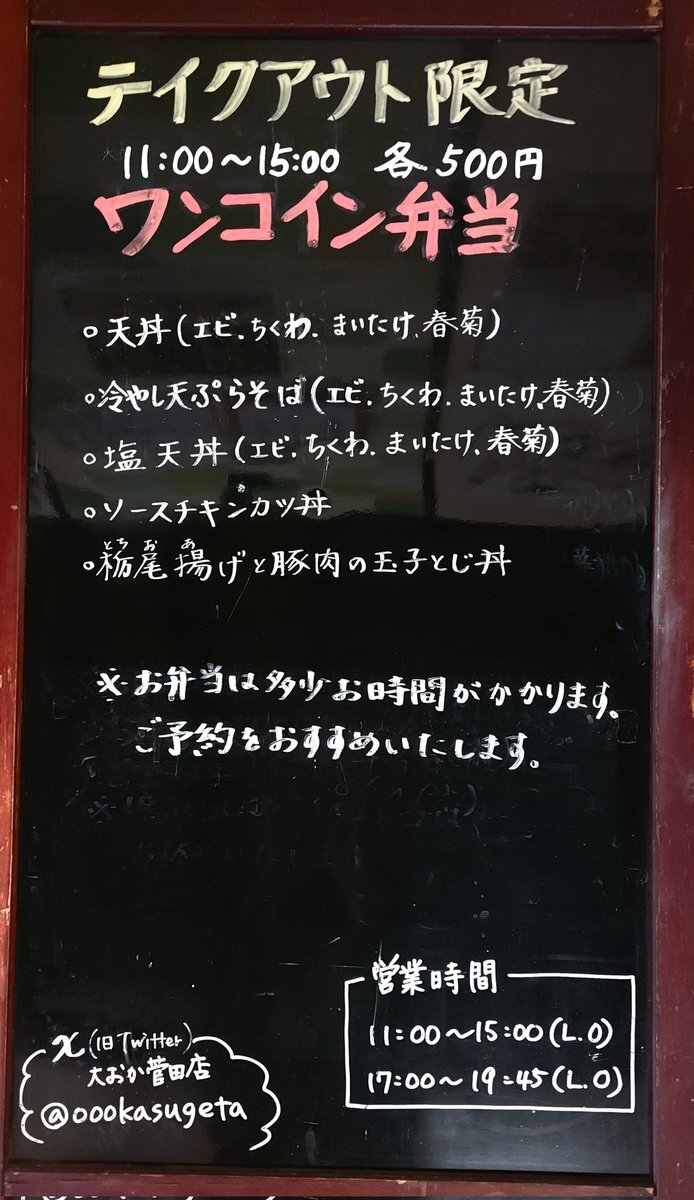 テイクアウト限定
11:00〜15:00 各500円
ワンコイン弁当
○天丼(エビ.ちくわ.まいたけ、春菊)
○冷やし天ぷらそば(エビ.ちくわ.まいたけ、春菊)
○塩天丼(エビ.ちくわ.まいたけ、春菊)
○ソースチキンカツ丼
とち お あ
○栃尾揚げと豚肉の玉子とじ丼
※お弁当は多少お時間がかかります。
ご予約をおすすめいたします。
営業時間
11:00〜15:00(L.O)
17:00〜19:45(L.O)
X(旧Twitter)
大おか菅田店
@oookasugeta